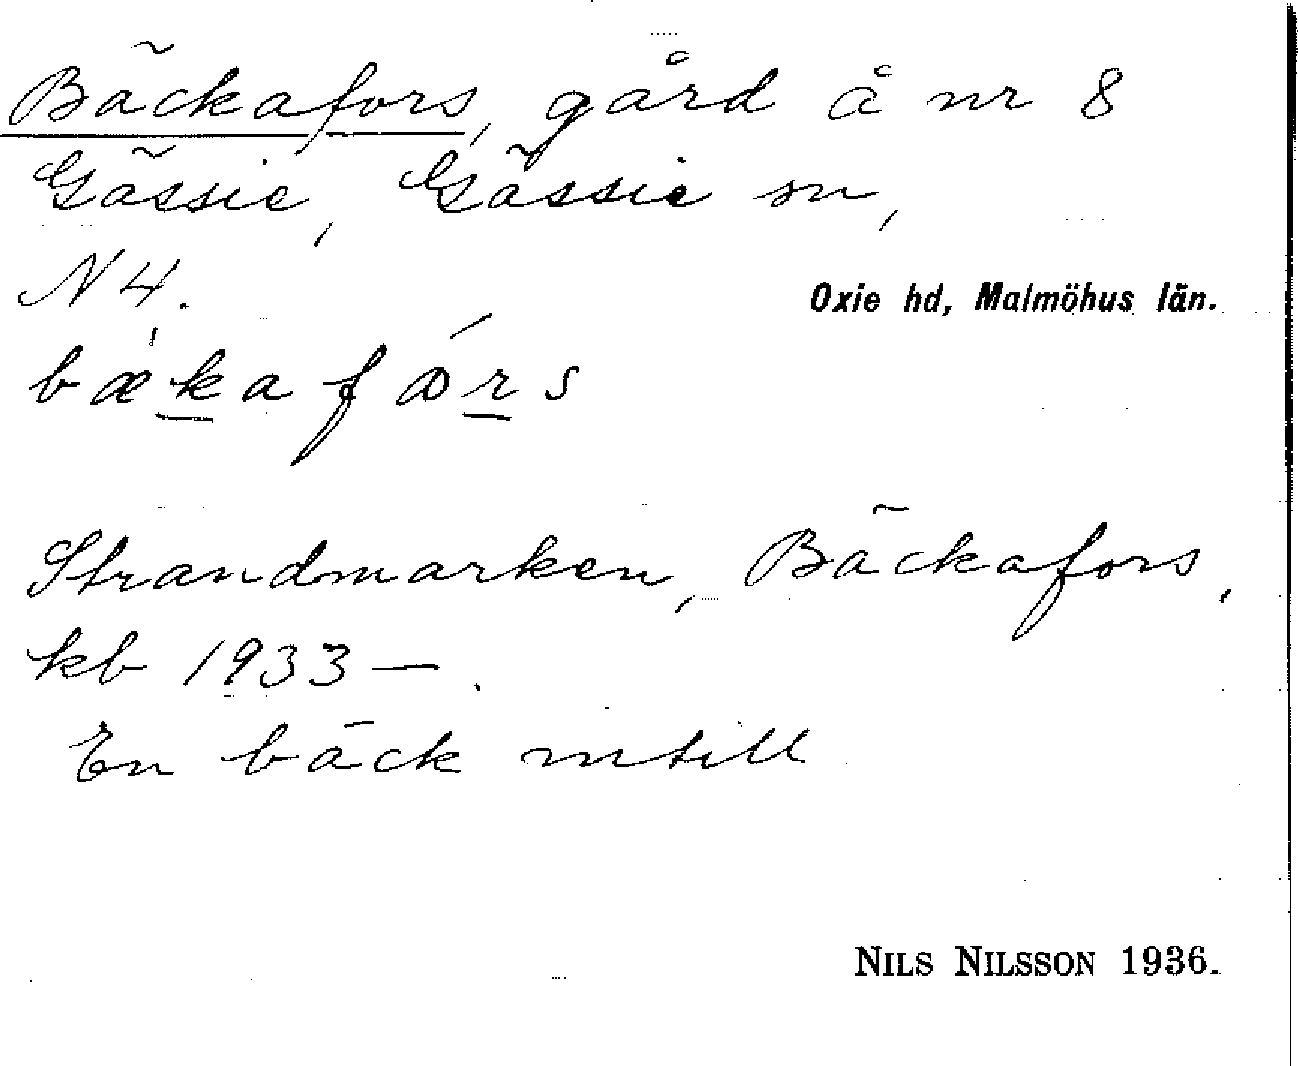 Bäckafors, gård å nr 8
Gässie, Gässie sn,
N 4.
Oxie hd, Malmöhus län.
bækafors
Strandmarken, Bäckafors,
kb 1933 — .
En bäck intill
NILS NILSSON 1936.